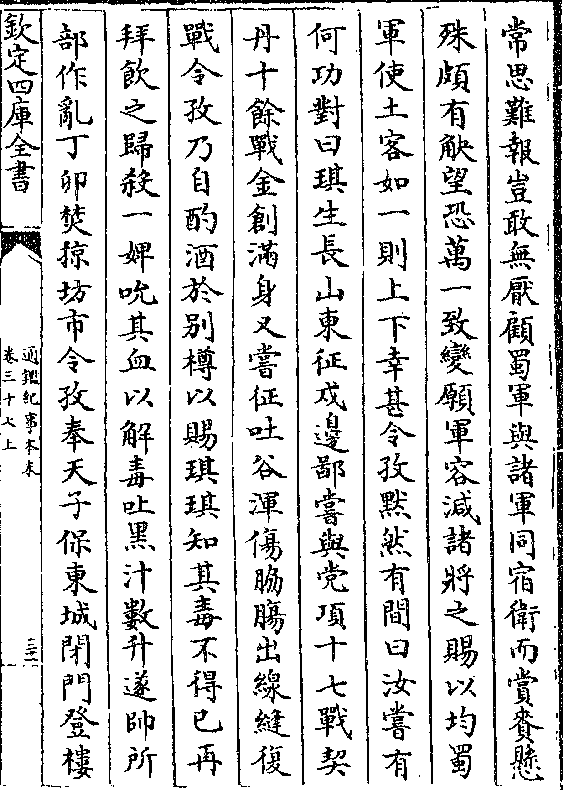 常思難報豈敢無厭顧蜀軍與諸軍同宿衛而賞賚懸
殊頗有觖望恐萬一致變願軍容減諸將之賜以均蜀
軍使土客如一則上下幸甚令孜黙然有間曰汝嘗有
何功對曰琪生長山東征戍邊鄙嘗與党項十七戰契
丹十餘戰金創滿身又嘗征吐谷渾傷脇腸出線縫復
戰令孜乃自酌酒於别樽以賜琪琪知其毒不得已再
拜飲之歸殺一婢吮其血以解毒吐黑汁數升遂帥所
部作亂丁卯焚掠坊市令孜奉天子保東城閉門登樓
欽定四庫全書
通鑑紀事本末
卷三十七上
三二